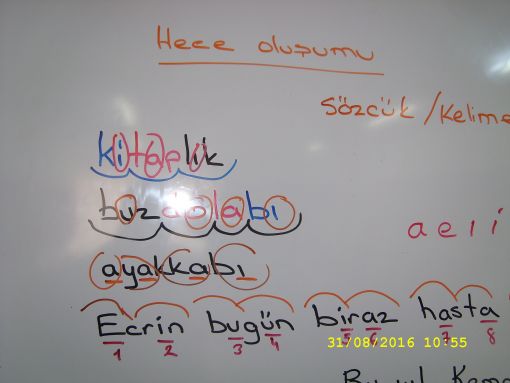 Hece oluşumu
Sözcük / Kelime
kitaplık
buzdolabı
a e ı i
ayakkabı
Ecrin bugün biraz hasta
1 2 3 4 5 6 7 8
31/08/2016 10:55